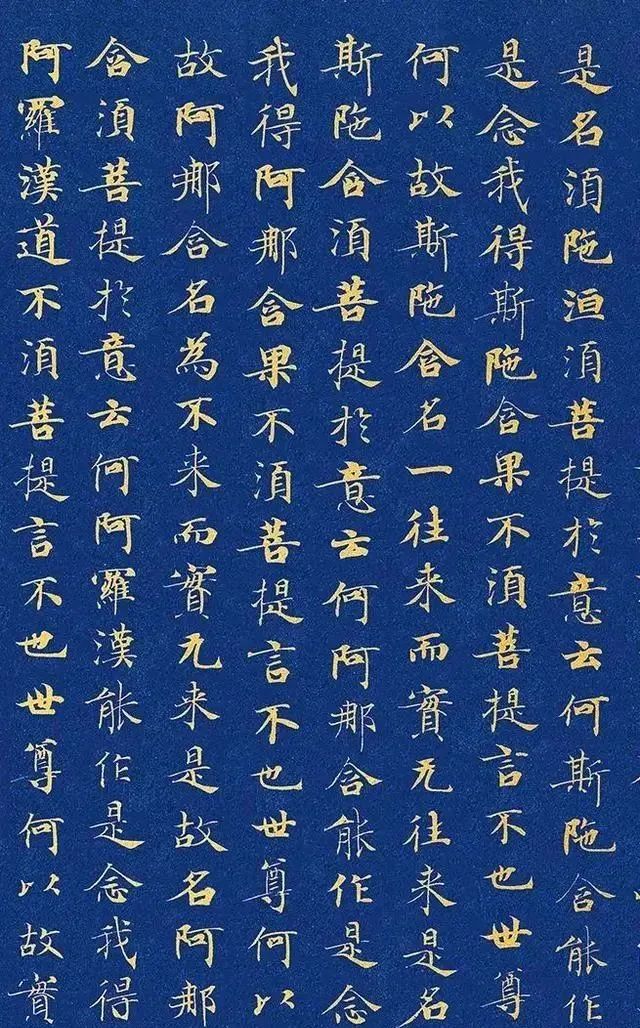 是名湏陁洹湏菩提扵意云何斯陁含能作
是念我得斯陁含果不湏菩提言不也世尊
何以故斯陁含名一往来而實无往来是名
斯陁含湏菩提扵意云何阿那含能作是念
我得阿那含果不湏菩提言不也世尊何以
故阿那含名為不来而實无来是故名阿那
含湏菩提扵意云何阿羅漢能作是念我得
阿羅漢道不湏菩提言不也世尊何以故實